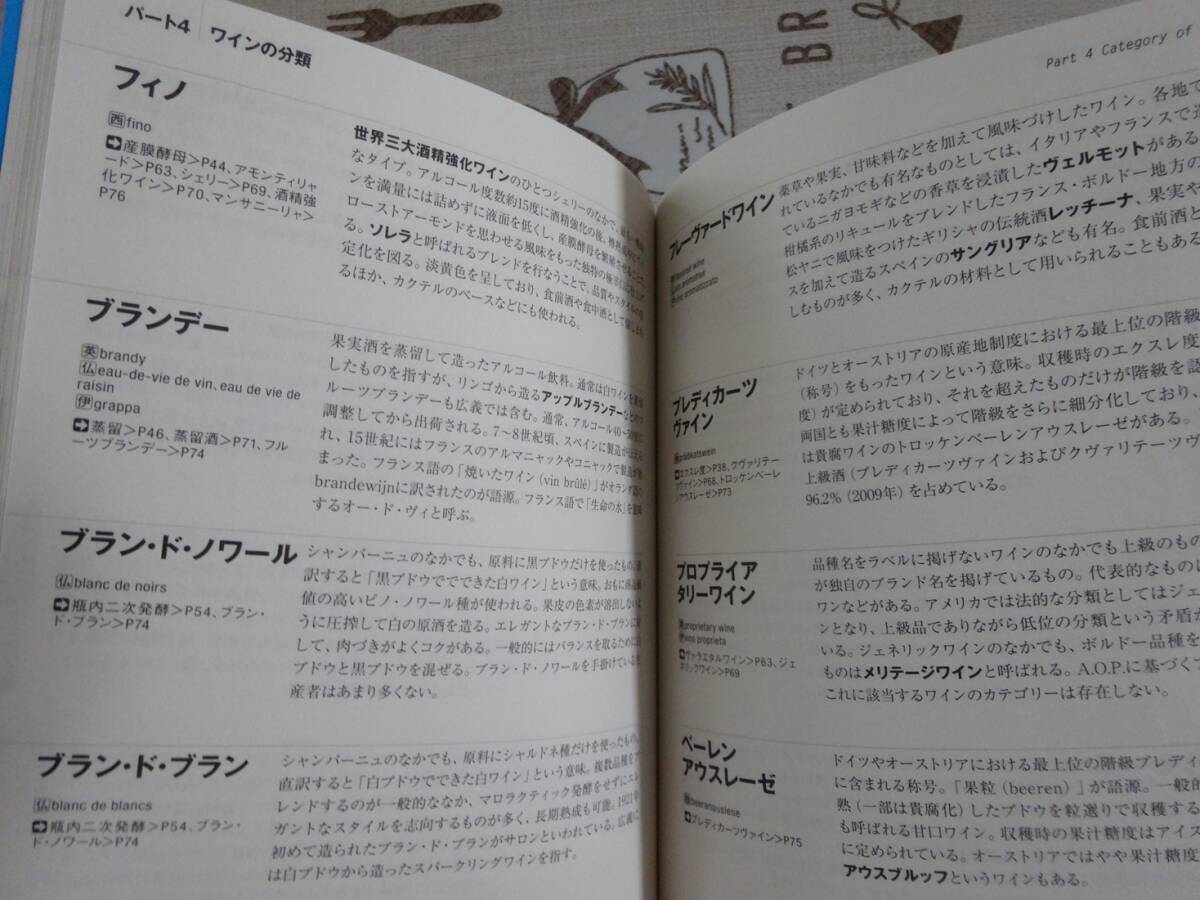 パート4 ワインの分類
フィノ
西fino
➡産膜酵母>P44、アモンティリャ
ード>P63、シェリー>P69、酒精強
化ワイン>P70、マンサニーリャ>
P76
世界三大酒精強化ワインのひとつシェリーのなかで、
なタイプ。アルコール度数約15度に酒精強化の後、樽
ンを満量には詰めずに液面を低くし、産膜酵母を繁殖させることで
ローストアーモンドを思わせる風味をもった独特の
る。ソレラと呼ばれるブレンドを行なうことで、品質やスタイルの
定化を図る。淡黄色を呈しており、食前酒や食中酒として
るほか、カクテルのベースなどにも使われる。
ブランデー
英brandy
仏eau-de-vie de vin, eau de vie de
raisin
伊grappa
➡蒸留>P46、蒸留酒>P71、フル
ーツブランデー>P74
果実酒を蒸留して造ったアルコール飲料。通常は白ワインを
したものを指すが、リンゴから造るアップルブランデーなどの
ルーツブランデーも広義では含む。通常、アルコール40〜
調整してから出荷される。7〜8世紀頃、スペインに製造が
れ、15世紀にはフランスのアルマニャックやコニャックで製造が
まった。フランス語の「焼いたワイン(vin brûlé)」がオランダ語の
brandewijnに訳されたのが語源。フランス語で「生命の水」を意味
するオー・ド・ヴィと呼ぶ。
ブラン・ド・ノワール
仏blanc de noirs
➡瓶内二次発酵>P54、ブラン・
ド・ブラン>P74
シャンパーニュのなかでも、原料に黒ブドウだけを使ったもの。
訳すると「黒ブドウでできた白ワイン」という意味。おもに商品
値の高いピノ・ノワール種が使われる。果皮の色素が溶出しないよ
うに圧搾して白の原酒を造る。エレガントなブラン・ド・ブランに
して、肉づきがよくコクがある。一般的にはバランスを取るために
ブドウと黒ブドウを混ぜる。ブラン・ド・ノワールを手掛けている
産者はあまり多くない。
ブラン・ド・ブラン
仏blanc de blancs
➡瓶内二次発酵>P54、ブラン・
ド・ノワール>P74
シャンパーニュのなかでも、原料にシャルドネ種だけを使ったもの。
直訳すると「白ブドウでできた白ワイン」という意味。複数品種を
レンドするのが一般的ななか、マロラクティック発酵をせずにエレ
ガントなスタイルを志向するものが多く、長期熟成も可能。1921年
初めて造られたブラン・ド・ブランがサロンといわれている。広義に
は白ブドウから造ったスパークリングワインを指す。
BR
Part 4 Category of
フレーヴァードワイン
薬草や果実、甘味料などを加えて風味づけしたワイン。各地で
れているなかでも有名なものとしては、イタリアやフランスで造
ているニガヨモギなどの香草を浸漬したヴェルモットがある
柑橘系のリキュールをブレンドしたフランス・ボルドー地方の
松ヤニで風味をつけたギリシャの伝統酒レッチーナ、果実や
スを加えて造るスペインのサングリアなども有名。食前酒と
しむものが多く、カクテルの材料として用いられることもある
プレディカーツ
ヴァイン
独prädikatswein
➡エクスレ度>P38、クヴァリテーツ
ヴァイン>P68、トロッケンベーレン
アウスレーゼ>P73
ドイツとオーストリアの原産地制度における最上位の階級
(称号)をもったワインという意味。収穫時のエクスレ度
度)が定められており、それを超えたものだけが階級を認
両国とも果汁糖度によって階級をさらに細分化しており、
は貴腐ワインのトロッケンベーレンアウスレーゼがある。
上級酒(プレディカーツヴァインおよびクヴァリテーツヴ
96.2%(2009年)を占めている。
プロプライア
タリーワイン
英proprietary wine
伊vino proprieta
➡ヴァラエタルワイン>P63、ジェ
ネリックワイン>P69
品種名をラベルに掲げないワインのなかでも上級のもの
が独自のブランド名を掲げているもの。代表的なものに
ワンなどがある。アメリカでは法的な分類としてはジェ
ンとなり、上級品でありながら低位の分類という矛盾が
いる。ジェネリックワインのなかでも、ボルドー品種を
ものはメリテージワインと呼ばれる。A.O.P.に基づく
これに該当するワインのカテゴリーは存在しない。
ベーレン
アウスレーゼ
独beerenauslese
➡プレディカーツヴァイン>P75
ドイツやオーストリアにおける最上位の階級プレディ
に含まれる称号。「果粒(beeren)」が語源。一般的
熟(一部は貴腐化)したブドウを粒選りで収穫する
も呼ばれる甘口ワイン。収穫時の果汁糖度はアイス
に定められている。オーストリアではやや果汁糖度
アウスブルッフというワインもある。